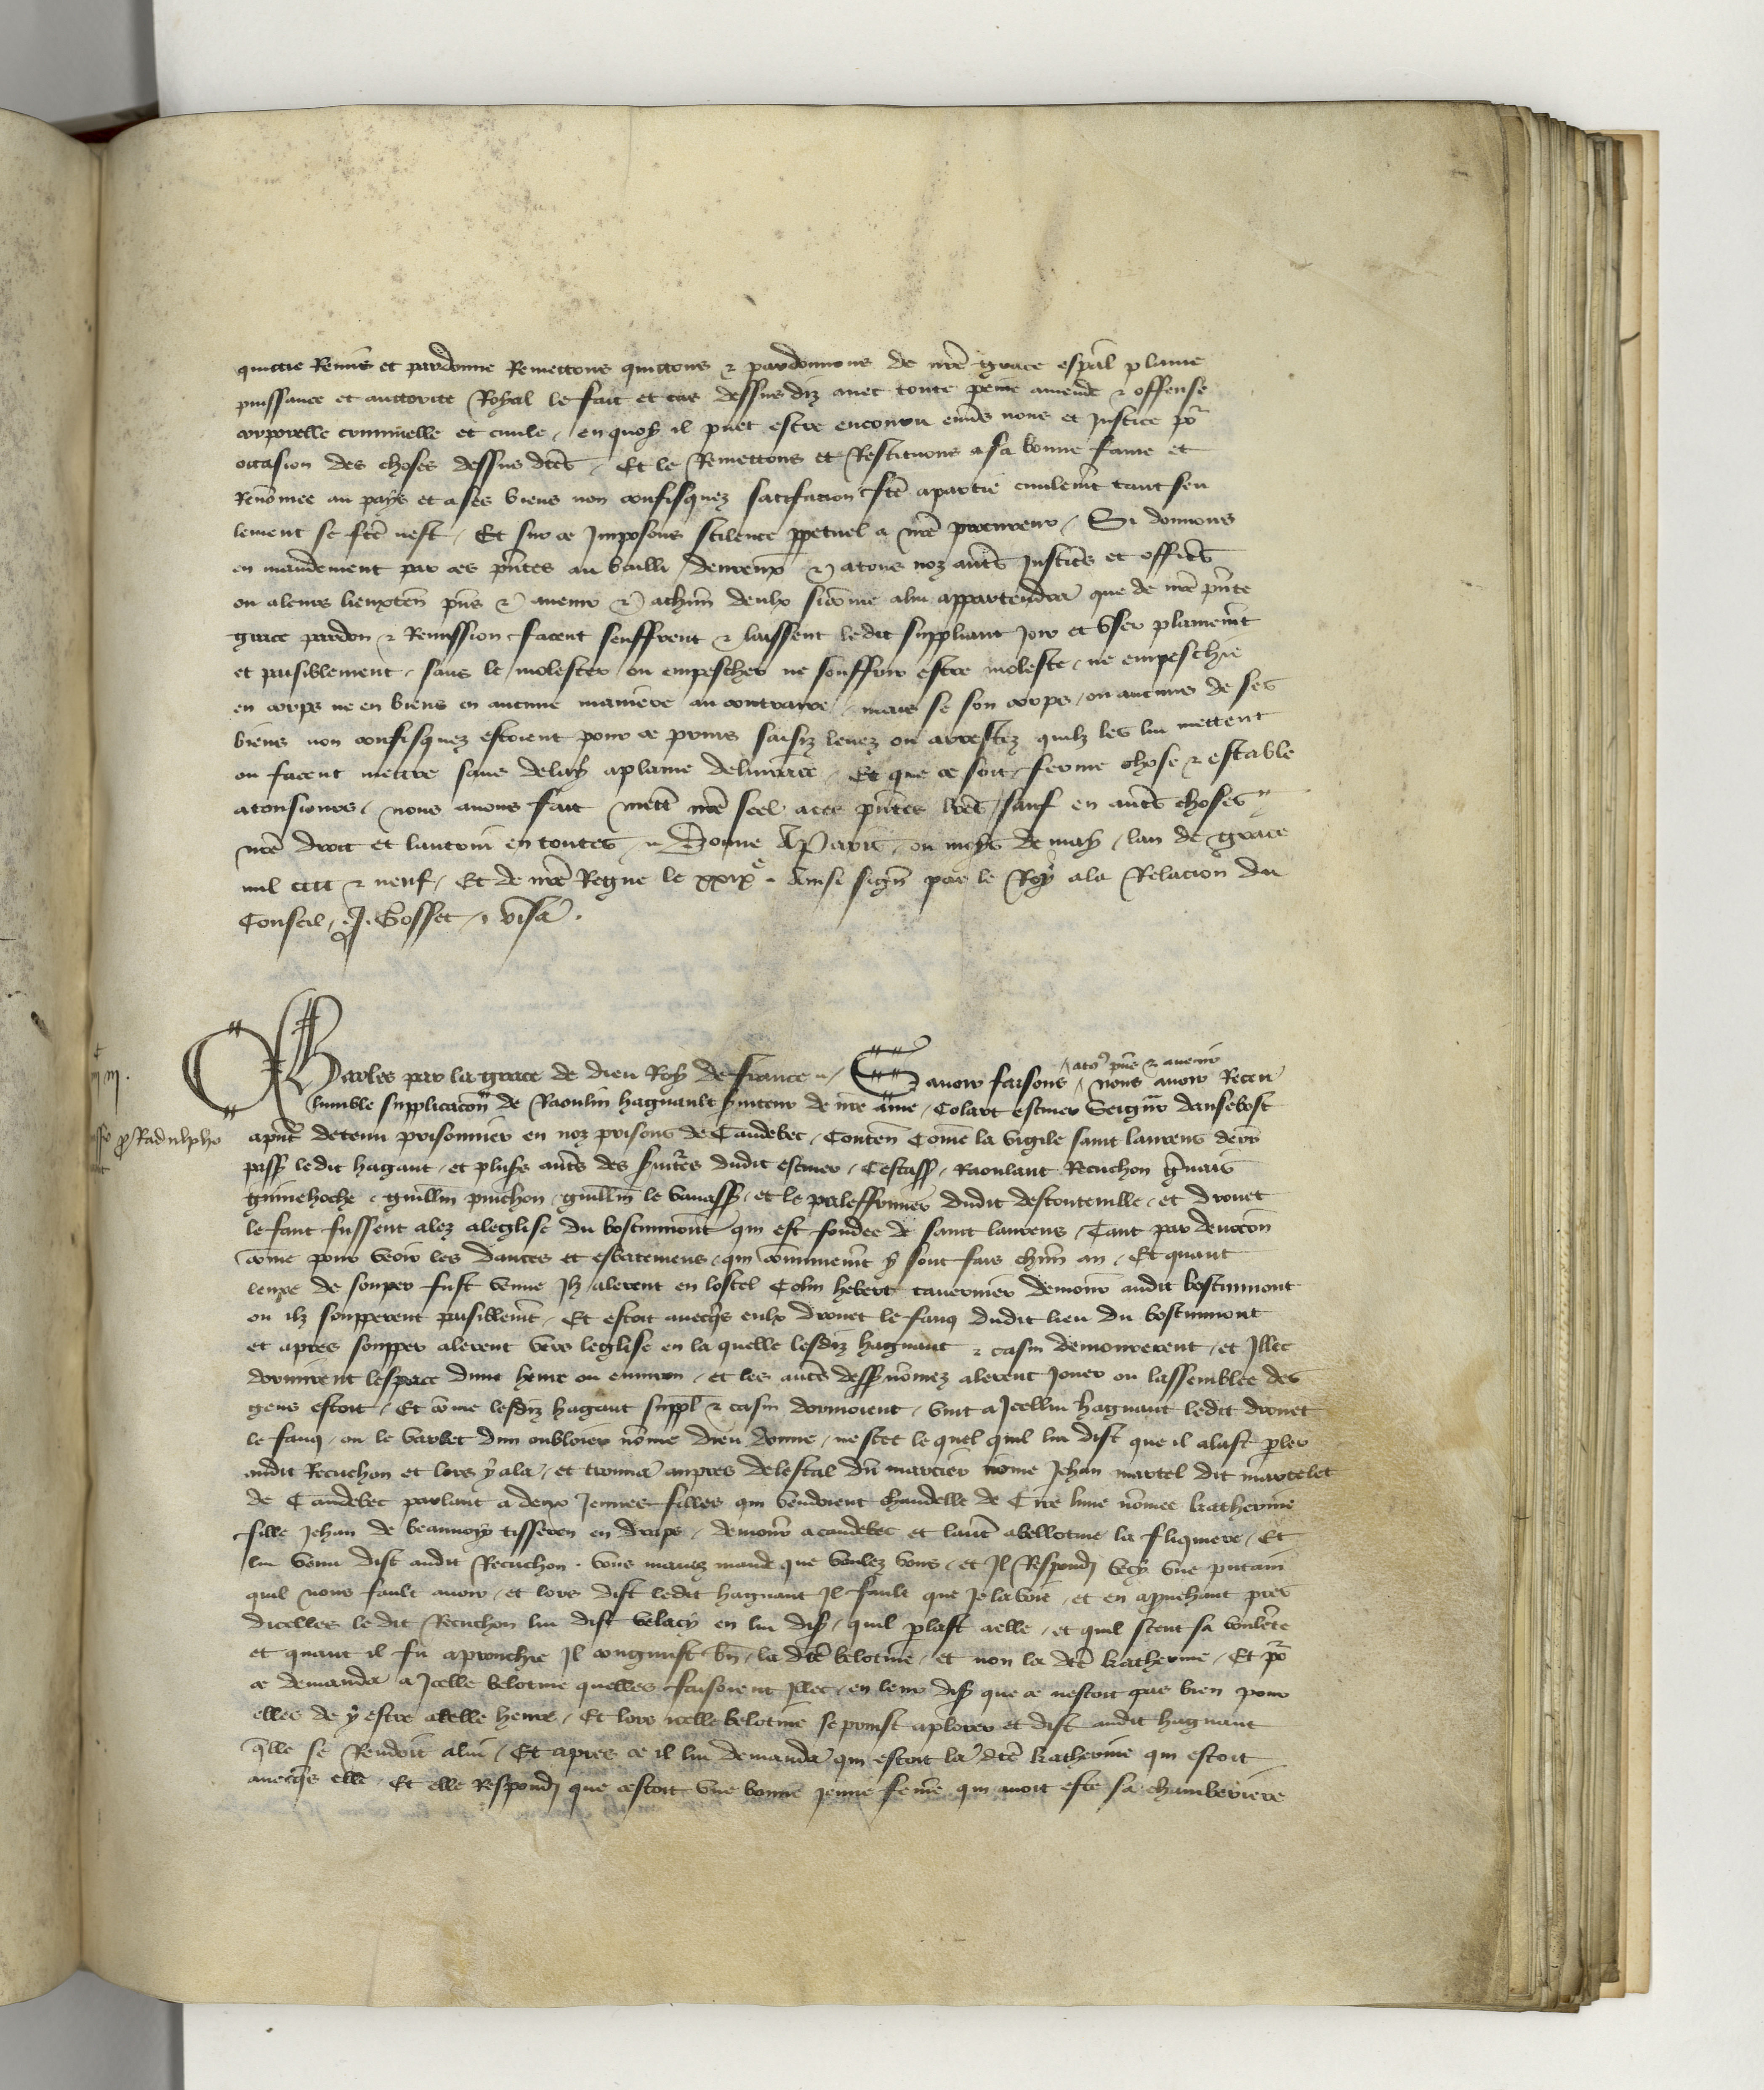 quictie Remis et pardonne Remectons quictons & pardonnons de nre grace espal plaine
puissance et auctorite Royal le fait et cas dessusdiz avec toute peine amende & offense
corporelle criminelle et civile / en quoy il puet estre encouru envs nous et Justice po2
occasion des choses dessus dces / Et le Remectons et Restituons a sa bonne fame et
Renomee au pays et a ses biens non confisquez satisfacion fce a partie civilemt tant seu
lement se fce nest / Et sur ce Imposons scilence ppetuel a nre procureur / Si donnons
en mandement par ces pntes au bailli devreux & a tous noz autres Justiciers et officiers
ou a leurs lieuxten pns & avenir & a chun deulx sicome a lui appartendra que de nre pnte
grace pardon & Remission facent seuffrent & laissent ledit suppliant Joir et user plainemt
et paisiblement / sans le molester ou empescher ne souffrir estre moleste / ne empeschie
en corps ne en biens en aucune maniere au contraire / mais se son corps / ou aucuns de ses
biens non confisquez estoient pour ce prins saisiz levez ou arrestez quilz les lui mettent
ou facent mettre sans delay a plaine delivrance / Et que ce soit ferme chose & estable
a tousiours / nous avons fait mectre nre seel a ces pntes lres / sauf en autres choses
nre droit et lautrui en toutes / Donne A Paris / ou moys de may / lan de grace
mil cccc & neuf / Et de nre Regne le xxixe. Ainsi signe par le Roy a la Relacion du
Conseil / J. Gosset / visa.
Charles par la grace de dieu Roy de france / Savoir faisons / a tous pns & avenir / nous avoir Receu
lumble supplicacon de Raoulin hagnault serviteur de nre ame / Colart escuier Seigneur dansebost
apnt detenu prisonnier en noz prisons de Caudebec / Conten Come la vigile saint laurens derr
pass ledit hagant / et pluss autres des serviteurs dudit escuier / Cestass / Raoulant Recuchon
guillm pinchon / guillm le vavass / et le paleffrenier dudit destouteville / et drouet
le fanc fussent alez a leglise du boscmmont qui est fondee de saint laurens / Tant par devocon
come pour veoir les dances et esbatemens / qui communemt y sont fais chun an / Et quant
leure de souper fust venue Ilz alerent en lostel Colin hebert tavernier demour audit boscmmont
ou ilz soupperent paisiblemt / Et estoit avecqs eulx drouet le fanq dudit lieu du boscmmont
et apres soupper alerent vers leglise en la quelle lesdiz hagnaut & casin demourerent / et Illec
dormirent lespace dune heure ou environ / et les autres dess nomez alerent Jouer ou lassemblee des
gens estoit / Et come lesdiz hagaut suppl & casin dormoient / vint a Icellui hagnaut ledit drouet
le fanq / ou le varlet dun oubloier nome dieu donne / ne scet le quel quil lui dist que il alast pler
audit Recuchon et lors y ala / et trouva aupres de lestal dun mercier nome Jehan martel dit martelet
de Caudebec parlant a deux Jeunes filles qui vendoient chandelle de Cire lune nomee katherine
fille Jehan de beaunoy tisseren en draps / demour a caudebec et laut a bellotine la fliquiere / Et
lui venu dist audit Recuchon . vous mavez mande que voulez vous / et Il Respondi vecy une putain
quil nous fault avoir / et lors dist ledit hagnaut Il fault que Je la voie / et en aprouchant pres
dicelles ledit Recuchon lui dist vela cy en lui dis / quil plast a elle / et quil sceut sa voulente
et quant il fu aprouchie Il congnust bn / la dce belotine / et non la dce katherine / Et po2
ce demanda a Icelle belotine quelles faisoient Illec / en leur dis que ce nestoit pas bien pour
elles de y estre a telle heure / Et lors icelle belotine se prinst a plorer et dist audit hagnaut
qlle se Rendoit a lui / Et apres ce il lui demanda qui estoit la dce katherine qui estoit
avecqs elle / Et elle Respondi que cestoit une bonne jeune feme qui avoit este sa chamberiere
pro Radulpho